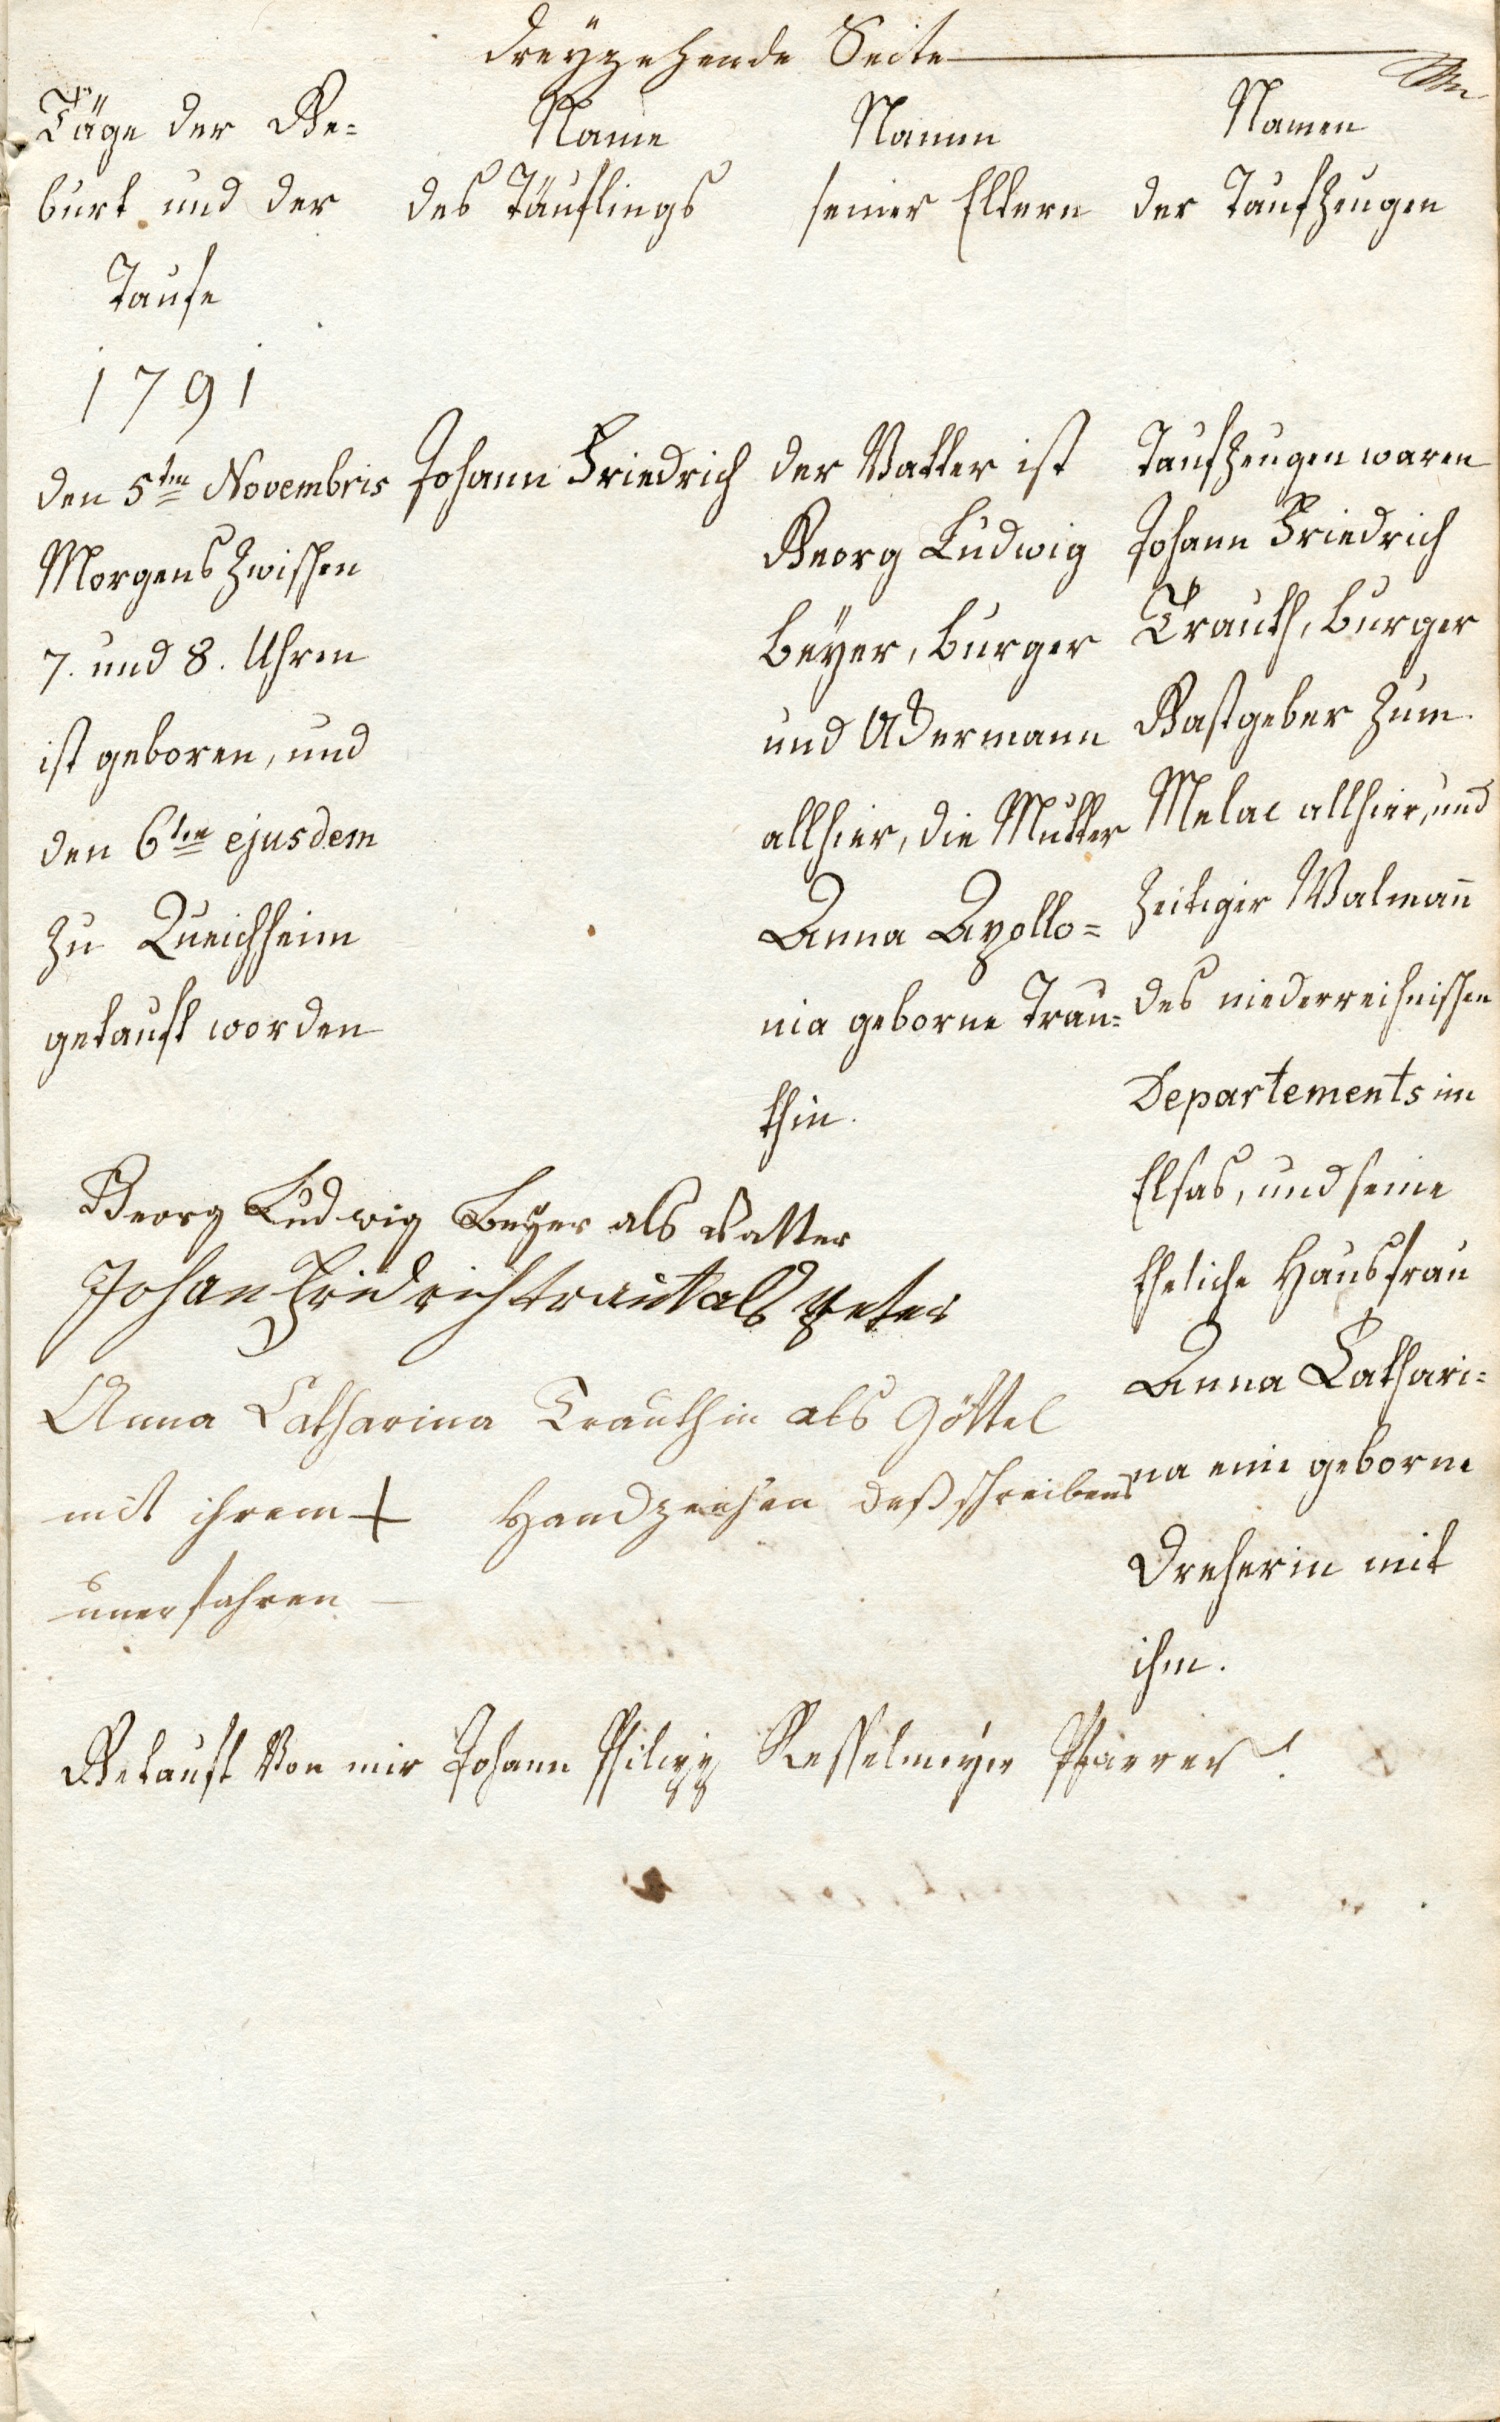 dreyzehende Seite
Täge der Ge=
burt und der
Taufe
1791
den 5ten Novembris
Morgens zwischen
7. und 8. Uhren
ist geboren, und
den 6ten ejusdem
zu Queichheim
getauft worden
Name
des Täuflings
Johann Friedrich
Namen
seiner Eltern
der Vatter ist
Georg Ludwig
beyer, burger
und Ackermann
allhier, die Mutter
Anna Apollo=
nia geborne Trau=
thin.
Namen
der Taufzeugen
Taufzeugen waren
Johann Friedrich
Trauth, burger
Gastgeber zum
Melac allhier, und
zeitiger Walmañ
des niederreihnischen
Departements im
Elsas, und seine
Eheliche Hausfrau
Anna Cathari=
na eine geborne
Dreherin mit
ihm.
Georg Ludwig Beyer als Vatter
Johan Fridrich traut als peter
Anna Catharina Trauthin als Göttel
mit ihrem + Handzeichen deß schreibens
unerfahren
Getauft Von mir Johann Philipp Kesselmeyer Pfarrer.